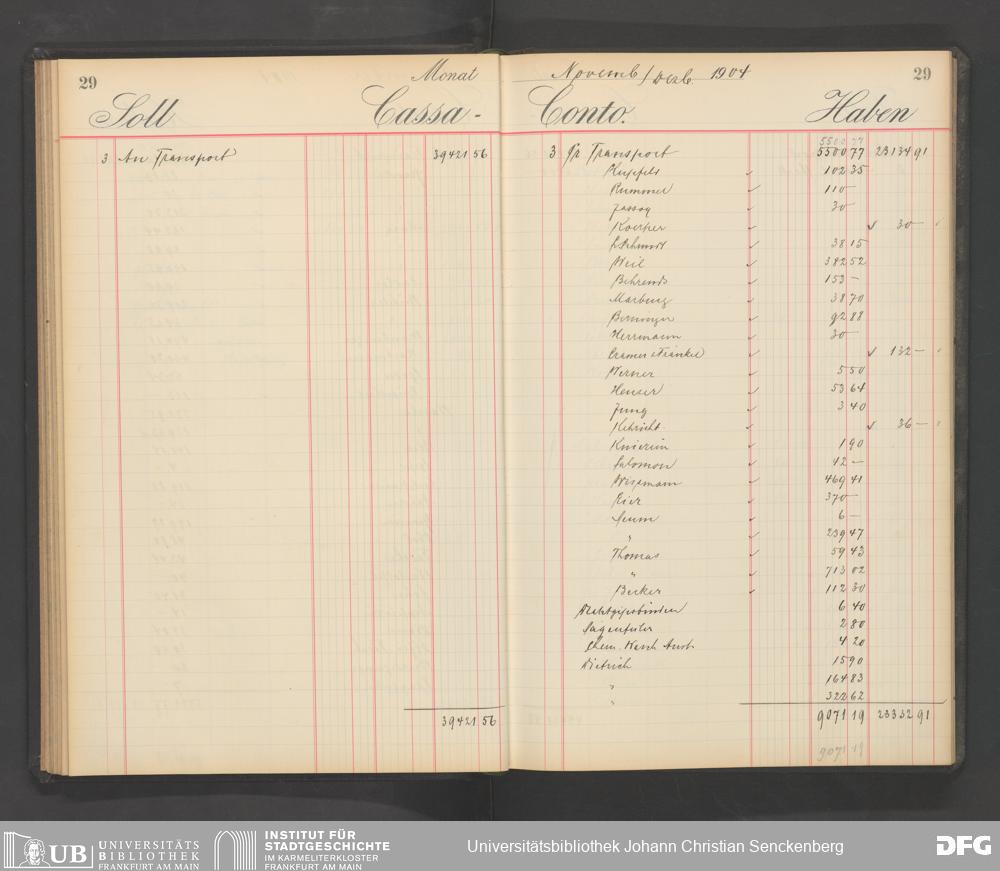 29
Monat
Soll
Cassa -
3 An Transport 39421 56
39421 56
Novemb / Dezb. 1904
29
Conto.
Haben
5500 77
3 Pr Transport 5500 77 23134 91
102 35
Rummel 110 —
Jassoy 30 —
Koerper 30 —
38 15
Weil 382 52
Behrends 153 —
Marburg 38 70
Berninger 92 88
Herrmann 30 —
Cramer & Fränkel 132 —
Werner 5 50
Heuser 53 64
Jung 3 40
Kehricht 36 —
Knierim 1 90
Salomon 42 —
Wissmann 469 41
Eier 370 —
Seum 6 —
" 239 47
Thomas 59 43
" 713 02
Becker 112 30
6 40
2 80
Chem. Wasch Anst. 4 20
Dietrich 15 90
" 164 83
" 322 62
9071 19 23332 91
9071 19
UB UNIVERSITÄTS BIBLIOTHEK FRANKFURT AM MAIN
INSTITUT FÜR STADTGESCHICHTE IM KARMELITERKLOSTER FRANKFURT AM MAIN
Universitätsbibliothek Johann Christian Senckenberg
DFG